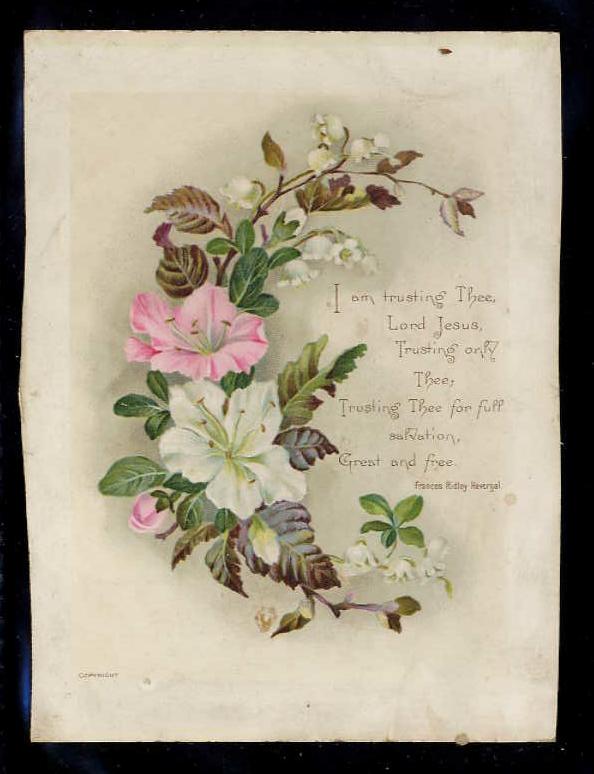 I am trusting Thee,
Lord Jesus,
Trusting only
Thee;
Trusting Thee for full
salvation,
Great and free.
Frances Ridley Havergal.
COPYRIGHT